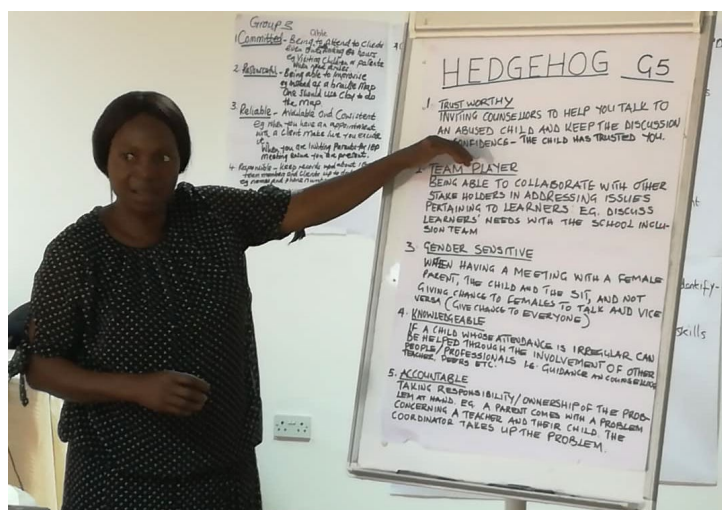 Group 3
1 Committed - Being able to attend to Clients
even outside working hours
eg Visiting Children or patients
2. Resourceful - Being able to improvise
eg instead of a braille map
One should use clay to do
the map.
3. Reliable - Available and Consistent
eg when you have an appointment
with a Client make sure you execute
it.
When you are inviting Parents for IEP
meeting ensure you are present.
4. Responsible - Keep records
team members and clients up to date
eg names and phone numbers
HEDGEHOG G5
1. TRUST WORTHY
INVITING COUNSELLORS TO HELP YOU TALK TO
AN ABUSED CHILD AND KEEP THE DISCUSSION
CONFIDENCE - THE CHILD HAS TRUSTED YOU.
2. TEAM PLAYER
BEING ABLE TO COLLABORATE WITH OTHER
STAKE HOLDERS IN ADDRESSING ISSUES
PERTAINING TO LEARNERS EG. DISCUSS
LEARNERS' NEEDS WITH THE SCHOOL INCLU-
SION TEAM
3. GENDER SENSITIVE
WHEN HAVING A MEETING WITH A FEMALE
PARENT, THE CHILD AND THE SIT, AND NOT
GIVING CHANCE TO FEMALES TO TALK AND VICE
VERSA (GIVE CHANCE TO EVERYONE)
4. KNOWLEDGEABLE
IF A CHILD WHOSE ATTENDANCE IS IRREGULAR CAN
BE HELPED THROUGH THE INVOLVEMENT OF OTHER
PEOPLE/PROFESSIONALS i.e. GUIDANCE AN COUNSELLING
TEACHER, PEERS ETC.
5. ACCOUNTABLE
TAKING RESPONSIBILITY/OWNERSHIP OF THE PROB-
LEM AT HAND. EG. A PARENT COMES WITH A PROBLEM
CONCERNING A TEACHER AND THEIR CHILD. THE
COORDINATOR TAKES UP THE PROBLEM.
dentify-
skills